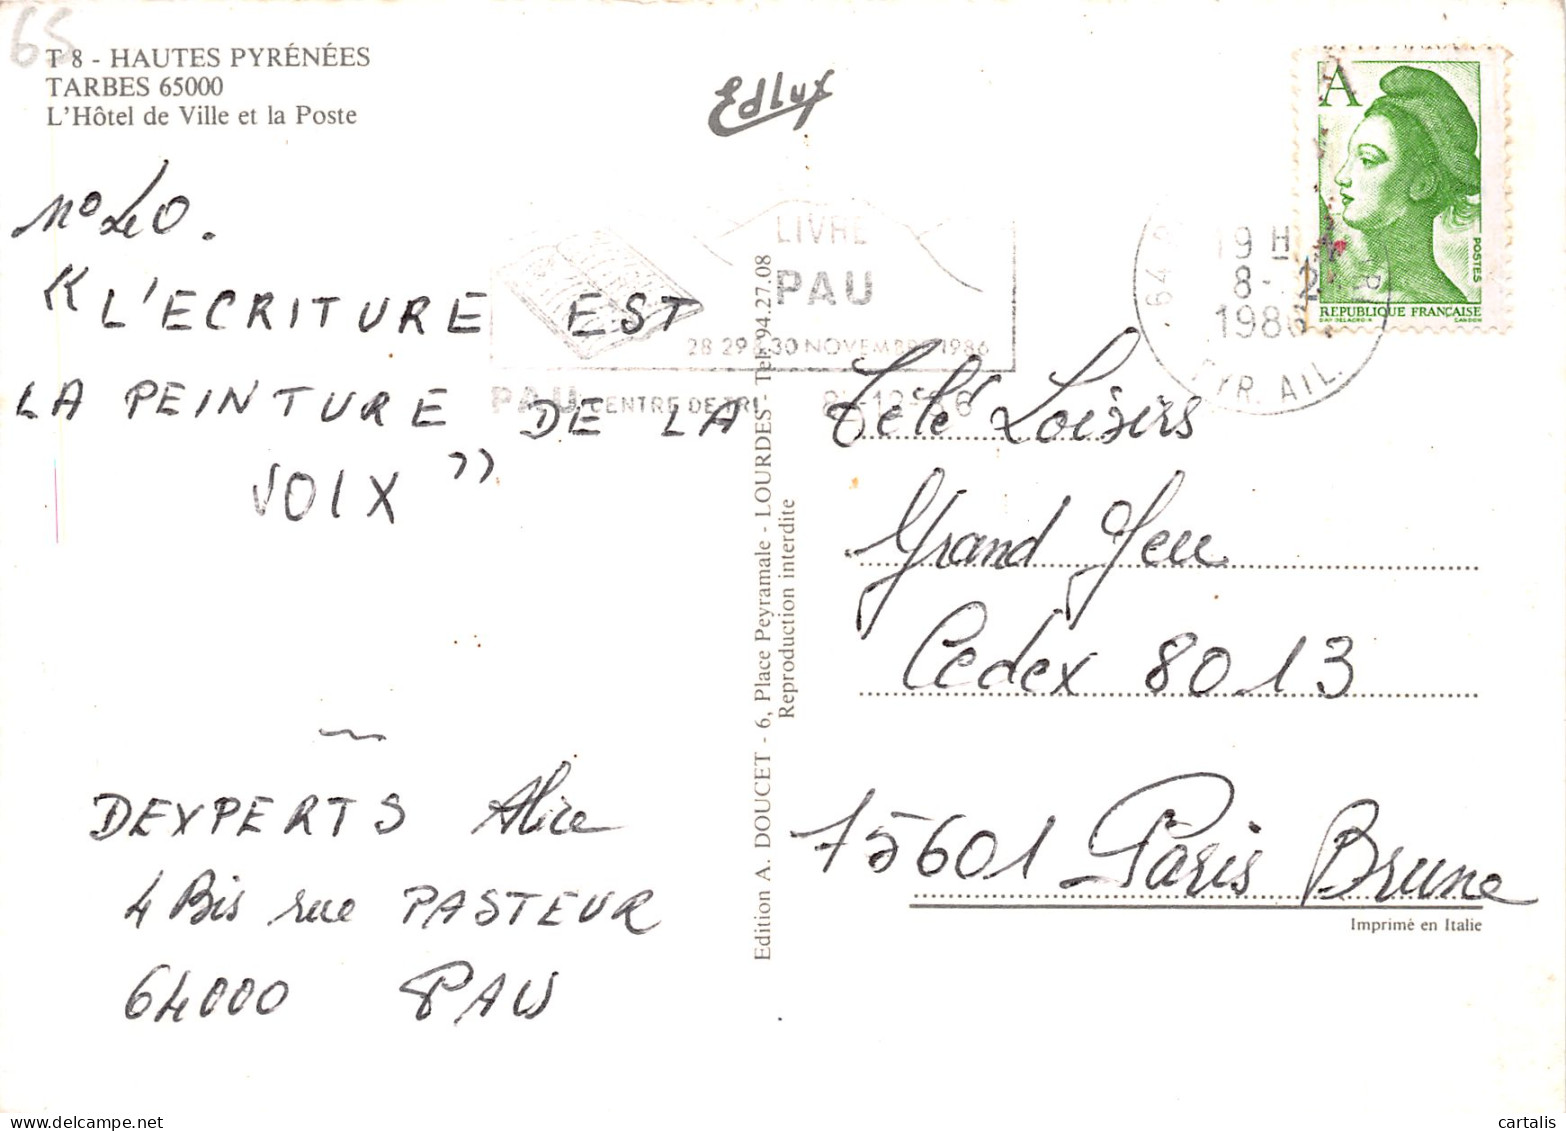 65
T 8 - HAUTES PYRÉNÉES
TARBES 65000
L'Hôtel de Ville et la Poste
Edlux
A
POSTES
REPUBLIQUE FRANÇAISE
N° 40.
« L'ECRITURE EST
LA PEINTURE DE LA
VOIX »
DEXPERTS Alice
4 Bis rue PASTEUR
64000 PAU
LIVRE
PAU
28 29 30 NOVEMBRE 1986
PAU CENTRE DE TRI
19 H
8-12
1986
PYR. ATL.
Edition A. DOUCET - 6, Place Peyramale - LOURDES - Tél. 94.27.08
Reproduction interdite
Télé Loisirs
Grand Jeu
Cedex 8013
75601 Paris Brune
Imprimé en Italie
cartalis